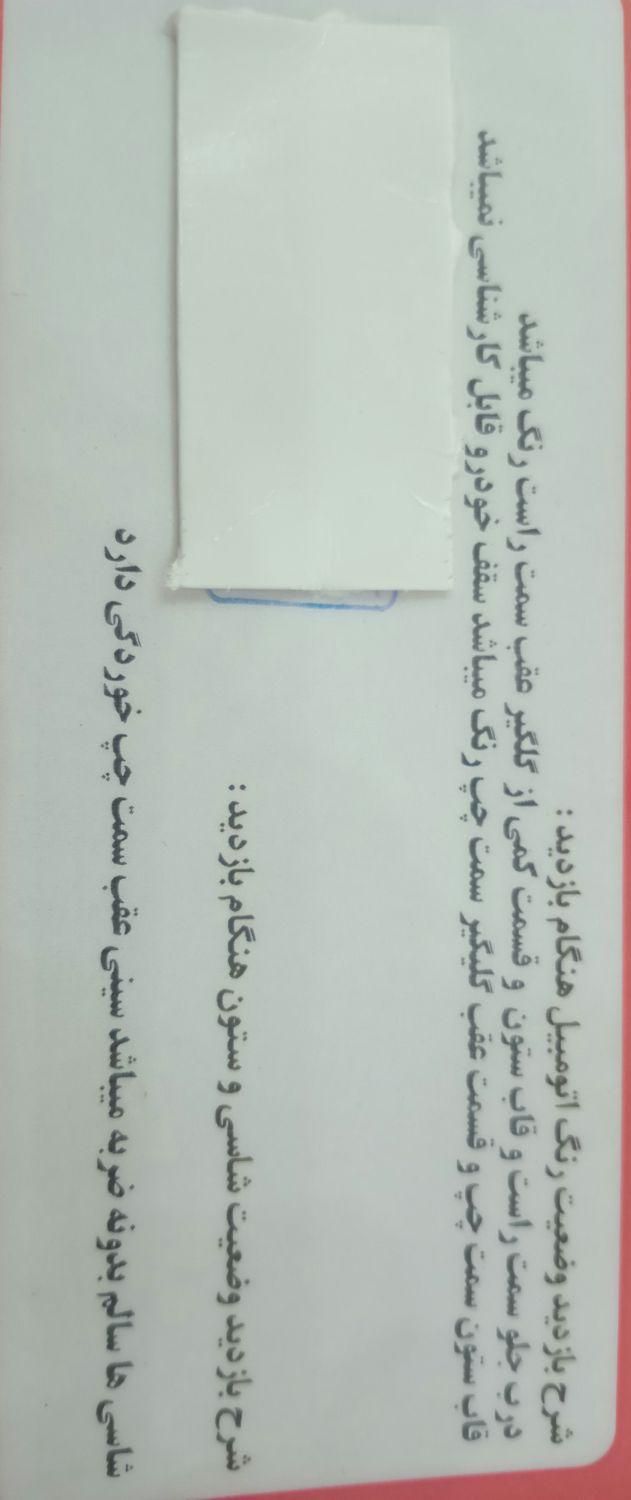 شرح بازدید وضعیت رنگ اتومبیل هنگام بازدید :
درب جلو سمت راست و قاب ستون و قسمت کمی از گلگیر عقب سمت راست رنگ میباشد
قاب ستون سمت چپ و قسمت عقب گلیگیر سمت چپ رنگ میباشد سقف خودرو قابل کارشناسی نمیباشد
شرح بازدید وضعیت شاسی و ستون هنگام بازدید :
شاسی ها سالم بدونه ضربه میباشد سینی عقب سمت چپ خوردگی دارد